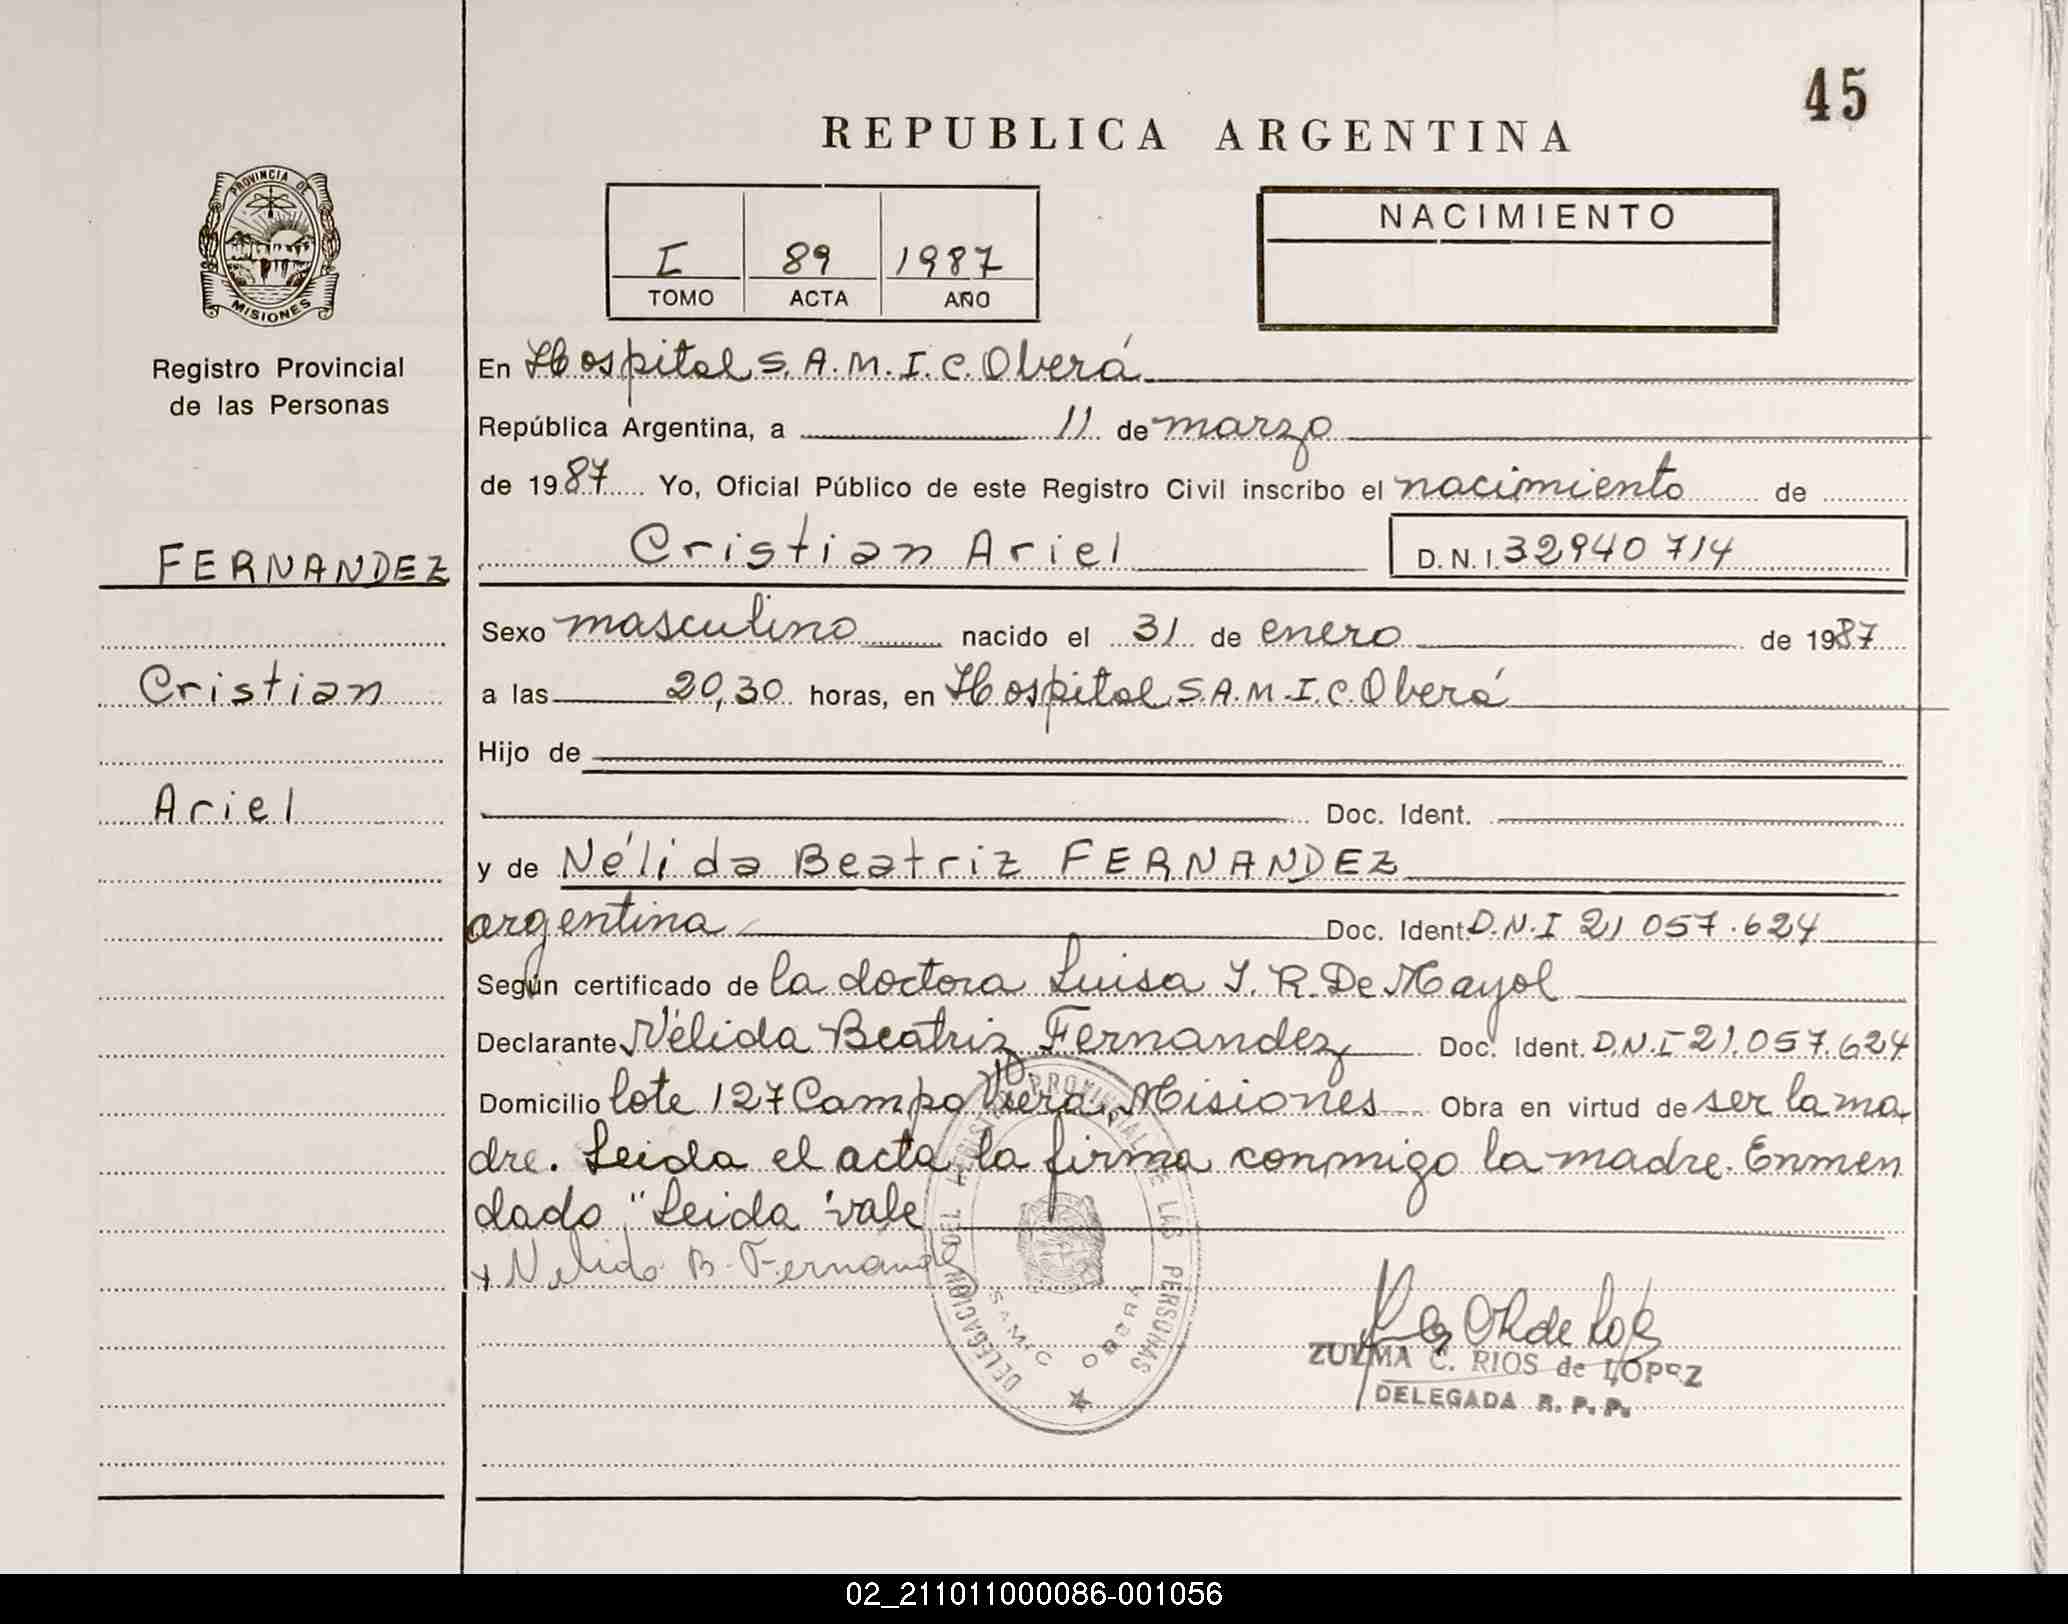 45
REPUBLICA ARGENTINA
PROVINCIA DE
MISIONES
I 89 1987
TOMO ACTA AÑO
NACIMIENTO
Registro Provincial
de las Personas
FERNANDEZ
Cristian
Ariel
En Hospital S.A.M.I.C. Oberá
República Argentina, a 11 de marzo
de 1987 Yo, Oficial Público de este Registro Civil inscribo el nacimiento de
Cristian Ariel D.N.I. 32940714
Sexo masculino nacido el 31 de enero de 1987
a las 20,30 horas, en Hospital S.A.M.I.C. Oberá
Hijo de
Doc. Ident.
y de Nélida Beatriz FERNANDEZ
argentina Doc. Ident. D.N.I 21 057.624
Según certificado de la doctora Luisa I. R. De Mayol
Declarante Nélida Beatriz Fernandez Doc. Ident. D.N.I 21.057.624
Domicilio lote 127 Campo Viera, Misiones Obra en virtud de ser la ma
dre. Leida el acta, la firma conmigo la madre. Enmen
dado "Leida" vale
x Nelida B. Fernandez
PROVINCIAL DE LAS PERSONAS
DELEGACION
SAMIC OBERA
ZULMA C. RIOS de LOPEZ
DELEGADA R. P. P.
02_211011000086-001056